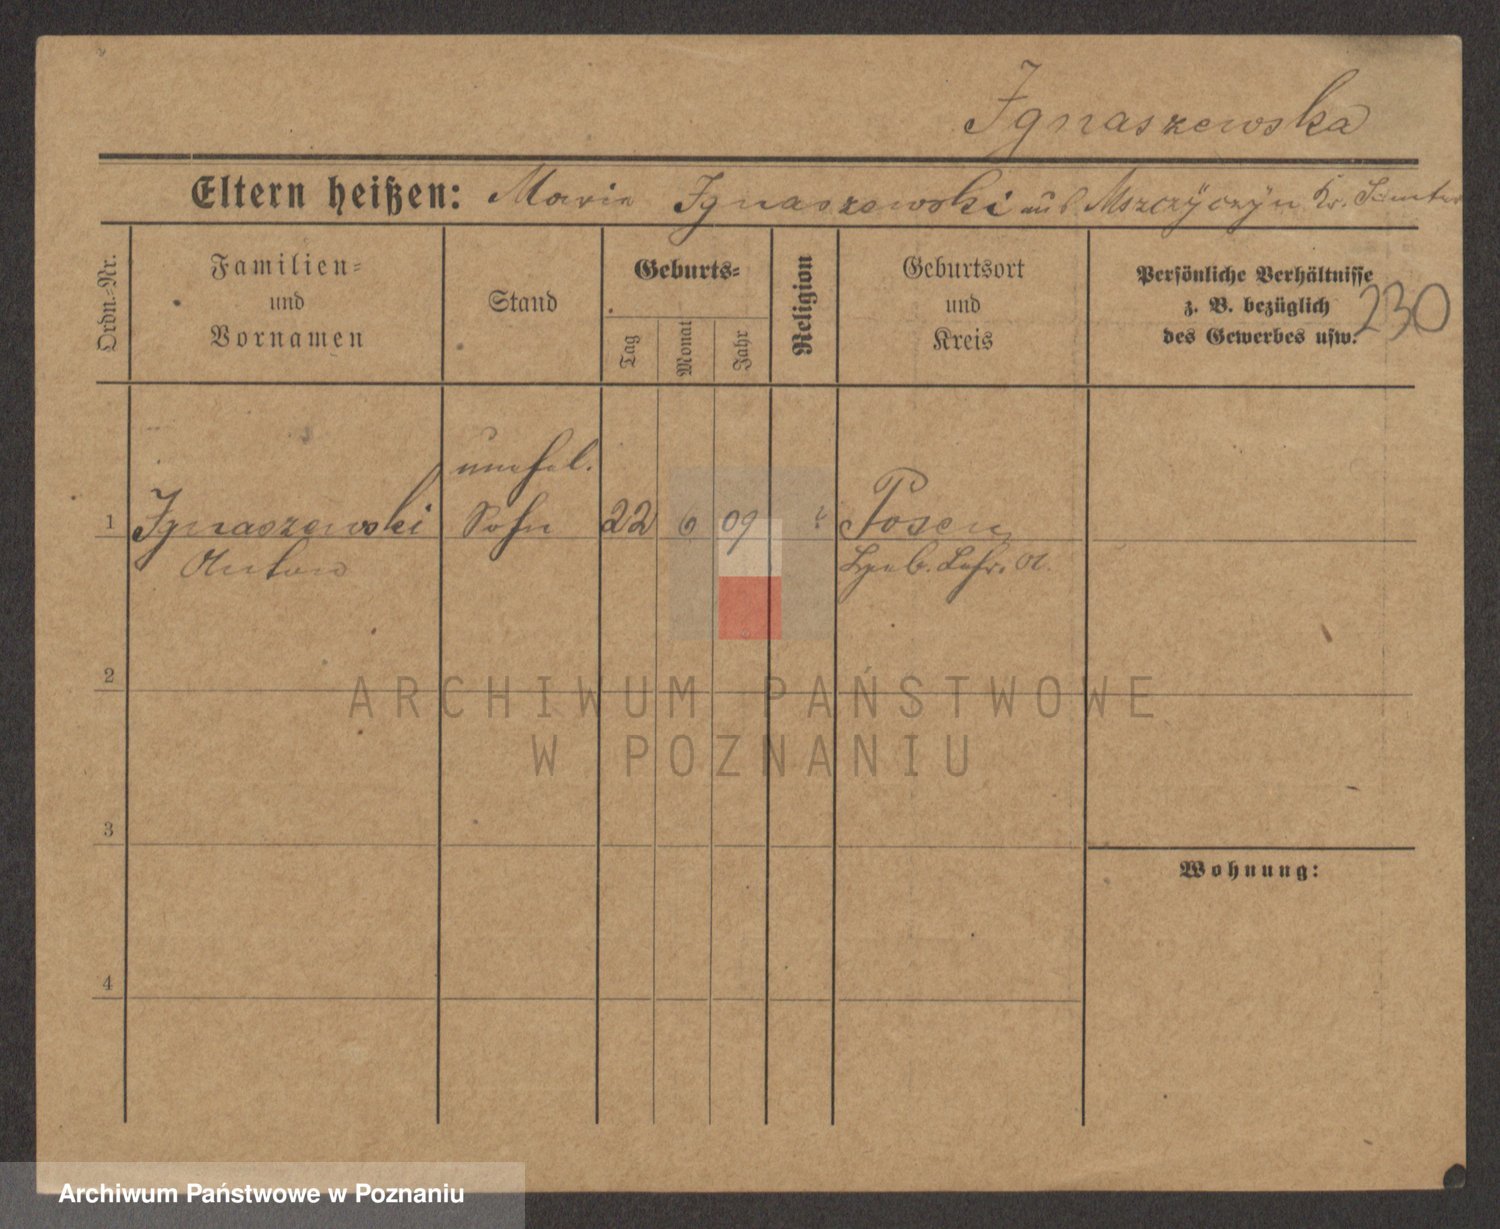 Ignaszewska
Eltern heißen: Marie Ignaszewski aus Mszczyczyn Kr. Samter
Ordn.-Nr.
Familien-
und
Vornamen
Stand
Geburts-
Tag
Monat
Jahr
Religion
Geburtsort
und
Kreis
Persönliche Verhältnisse
z. B. bezüglich
des Gewerbes usw.
230
unehel.
1 Ignaszewski Sohn 22 6 09 k Posen
Anton
2
3
4
Wohnung:
ARCHIWUM PAŃSTWOWE
W POZNANIU
Archiwum Państwowe w Poznaniu